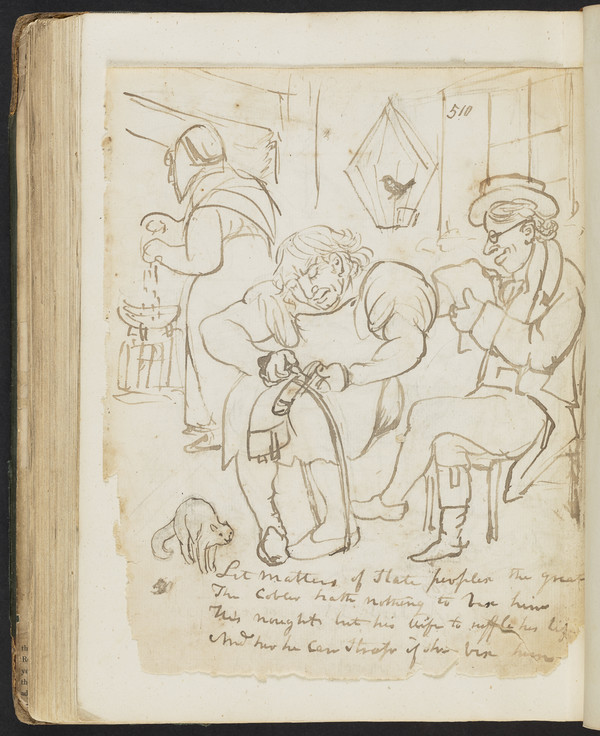 510
Let matters of State perplex the great
The Cobler hath nothing to vex him
His nought but his wife to ruffle his
And her he can Strap if she vex him